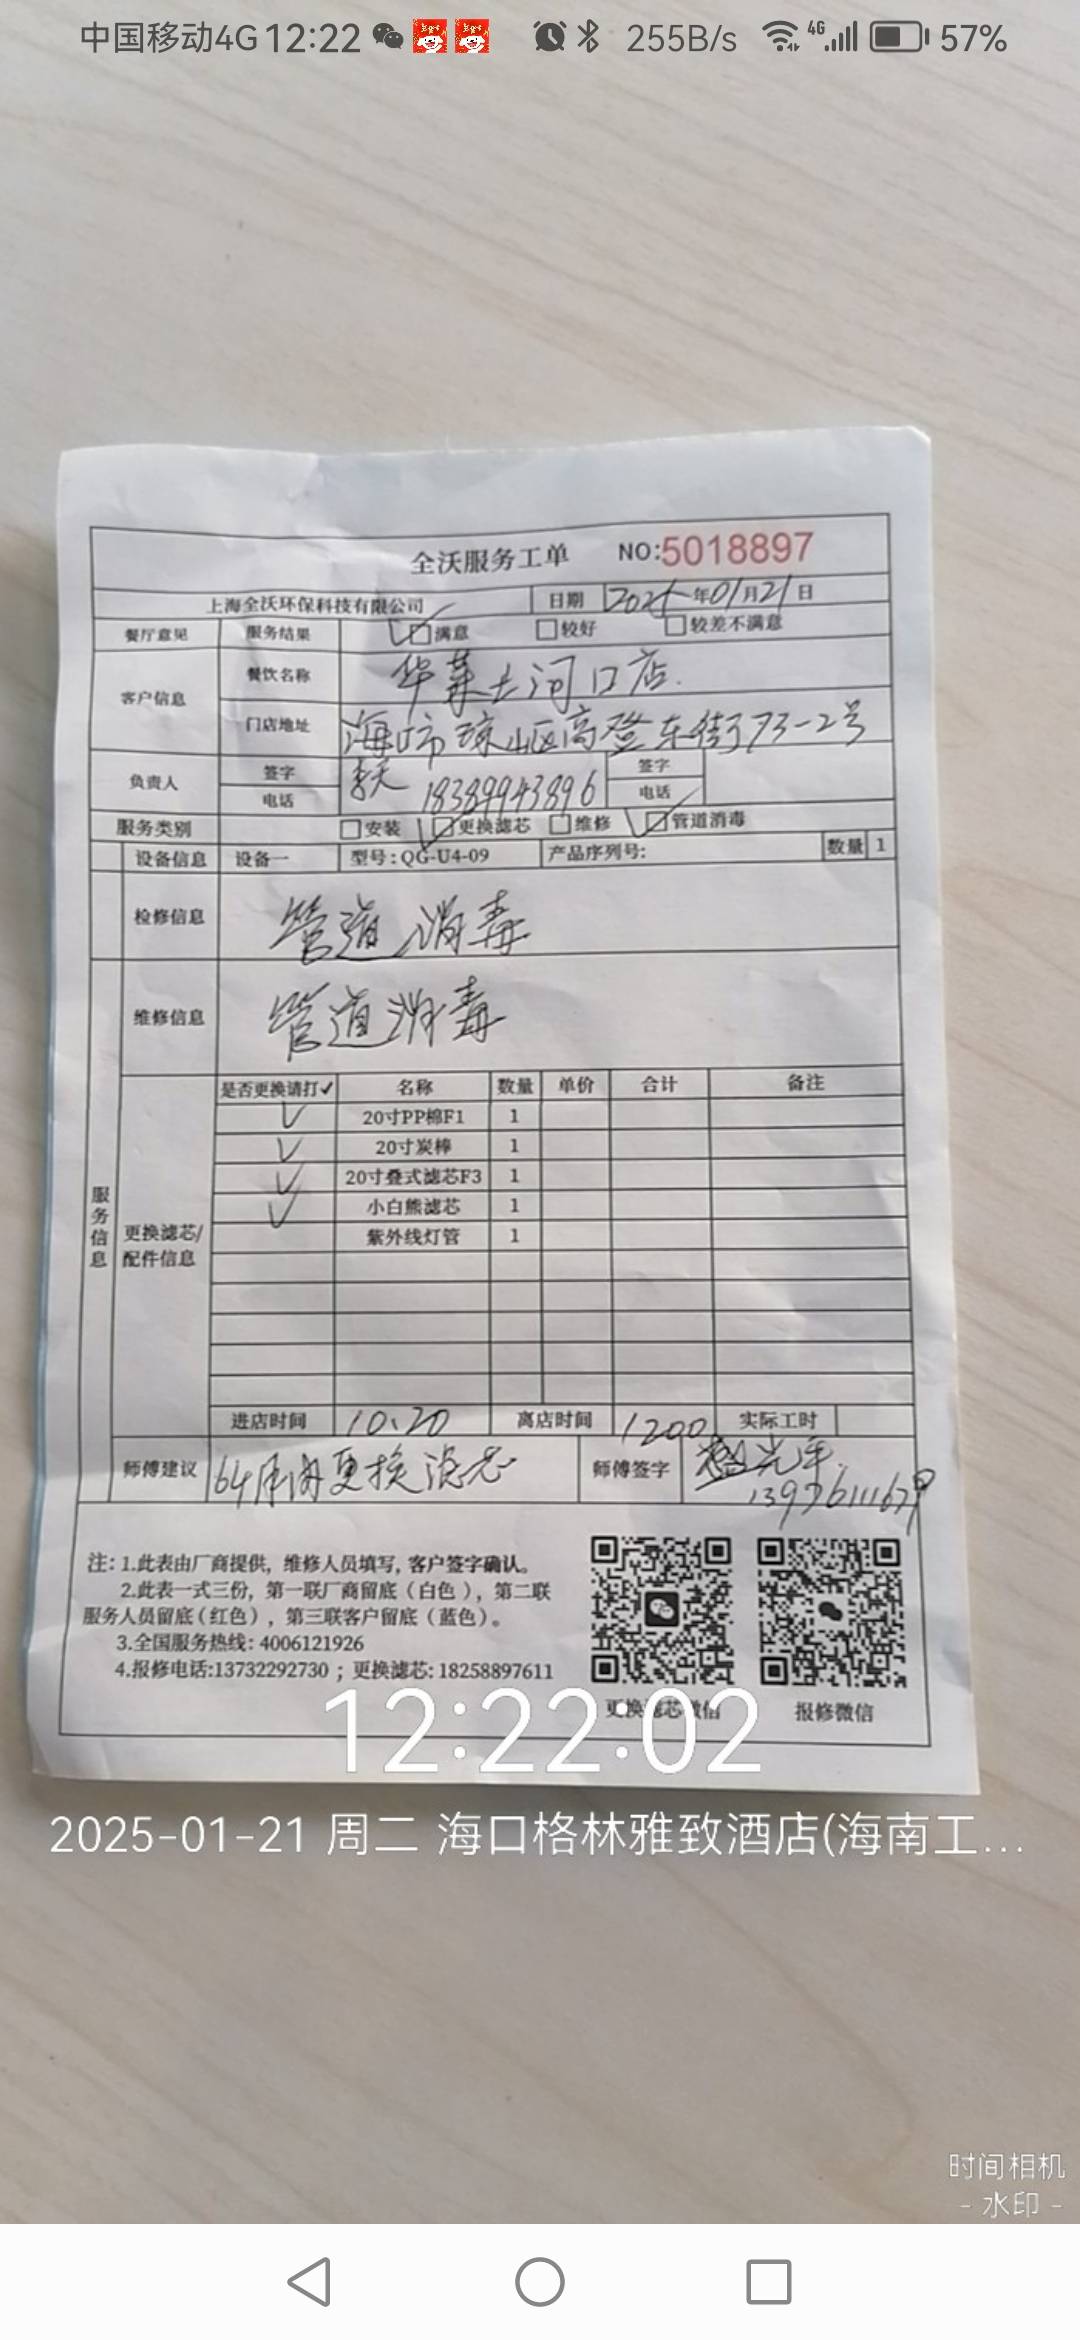 中国移动4G 12:22 255B/s 4G 57%
全沃服务工单 NO:5018897
上海全沃环保科技有限公司 日期 2025年01月21日
餐厅意见 服务结果 满意 较好 较差不满意
客户信息 餐饮名称 华莱士河口店
门店地址 海口市琼山区高登东街73-2号
负责人 签字 签字
电话 18389943896 电话
服务类别 安装 更换滤芯 维修 管道消毒
设备信息 设备一 型号:QG-U4-09 产品序列号: 数量 1
检修信息 管道消毒
维修信息 管道消毒
服务信息
更换滤芯/配件信息
是否更换请打✓ 名称 数量 单价 合计 备注
✓ 20寸PP棉F1 1
✓ 20寸炭棒 1
✓ 20寸叠式滤芯F3 1
✓ 小白熊滤芯 1
紫外线灯管 1
进店时间 10:20 离店时间 1200 实际工时
师傅建议 6个月内更换滤芯 师傅签字
注: 1.此表由厂商提供，维修人员填写, 客户签字确认。
2.此表一式三份，第一联厂商留底（白色），第二联
服务人员留底（红色），第三联客户留底（蓝色）。
3.全国服务热线: 4006121926
4.报修电话:13732292730；更换滤芯: 18258897611
更换滤芯微信 报修微信
12:22:02
2025-01-21 周二 海口格林雅致酒店(海南工...
时间相机
- 水印 -